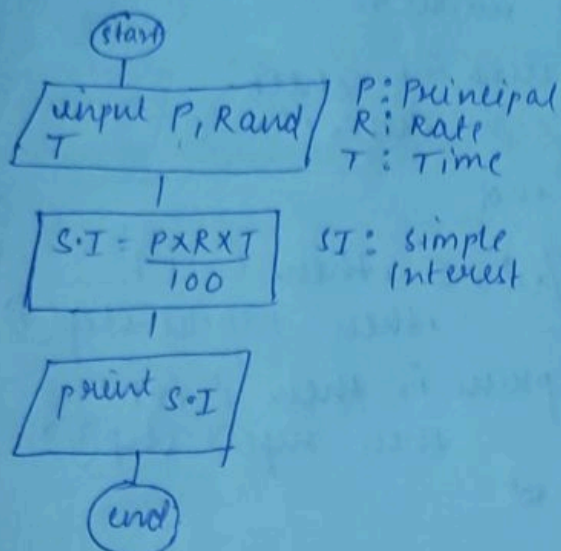 start
input P, R and
T
P: Principal
R: Rate
T: Time
S.I = PXRXT
100
SI: simple
Interest
print S.I
end